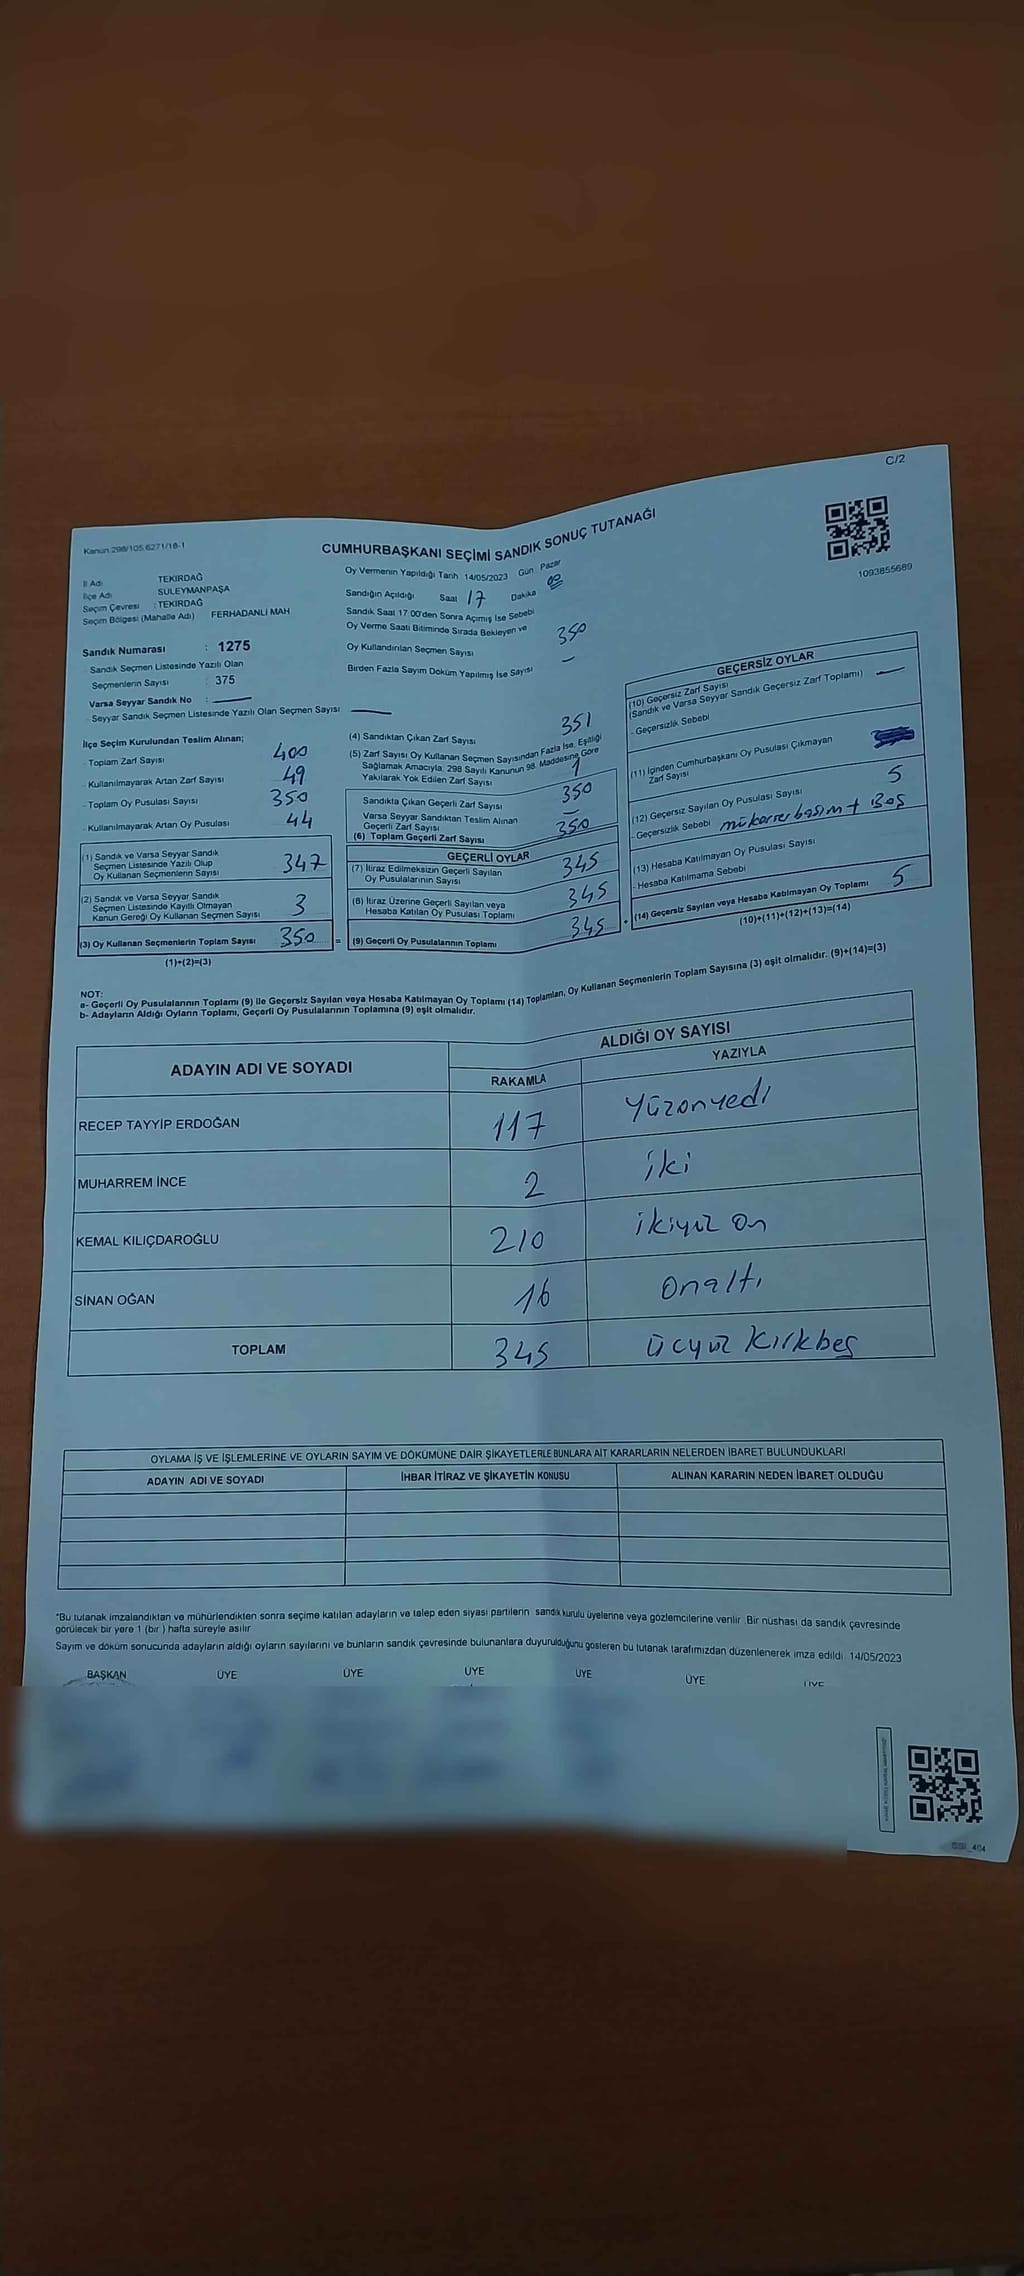 C/2
Kanun 298/105;6271/16-1
CUMHURBAŞKANI SEÇİMİ SANDIK SONUÇ TUTANAĞI
1093855689
İl Adı TEKİRDAĞ
İlçe Adı SÜLEYMANPAŞA
Seçim Çevresi : TEKİRDAĞ
Seçim Bölgesi (Mahalle Adı) FERHADANLI MAH
Sandık Numarası : 1275
Sandık Seçmen Listesinde Yazılı Olan
Seçmenlerin Sayısı : 375
Varsa Seyyar Sandık No :
Seyyar Sandık Seçmen Listesinde Yazılı Olan Seçmen Sayısı
Oy Vermenin Yapıldığı Tarih 14/05/2023 Gün Pazar
Sandığın Açıldığı Saat 17 Dakika 00
Sandık Saat 17:00'den Sonra Açımış İse Sebebi
Oy Verme Saati Bitiminde Sırada Bekleyen ve
Oy Kullandırılan Seçmen Sayısı 350
Birden Fazla Sayım Döküm Yapılmış İse Sayısı —
İlçe Seçim Kurulundan Teslim Alınan;
- Toplam Zarf Sayısı 400
- Kullanılmayarak Artan Zarf Sayısı 49
- Toplam Oy Pusulası Sayısı 350
- Kullanılmayarak Artan Oy Pusulası 44
(1) Sandık ve Varsa Seyyar Sandık
Seçmen Listesinde Yazılı Olup
Oy Kullanan Seçmenlerin Sayısı 347
(2) Sandık ve Varsa Seyyar Sandık
Seçmen Listesinde Kayıtlı Olmayan
Kanun Gereği Oy Kullanan Seçmen Sayısı 3
(3) Oy Kullanan Seçmenlerin Toplam Sayısı 350 =
(1)+(2)=(3)
(4) Sandıktan Çıkan Zarf Sayısı 351
(5) Zarf Sayısı Oy Kullanan Seçmen Sayısından Fazla İse, Eşitliği
Sağlamak Amacıyla, 298 Sayılı Kanunun 98. Maddesine Göre
Yakılarak Yok Edilen Zarf Sayısı 1
Sandıkta Çıkan Geçerli Zarf Sayısı 350
Varsa Seyyar Sandıktan Teslim Alınan
Geçerli Zarf Sayısı —
(6) Toplam Geçerli Zarf Sayısı 350
GEÇERLİ OYLAR
(7) İtiraz Edilmeksizin Geçerli Sayılan
Oy Pusulalarının Sayısı 345
(8) İtiraz Üzerine Geçerli Sayılan veya
Hesaba Katılan Oy Pusulası Toplamı 345
(9) Geçerli Oy Pusulalarının Toplamı 345 +
GEÇERSİZ OYLAR
(10) Geçersiz Zarf Sayısı
(Sandık ve Varsa Seyyar Sandık Geçersiz Zarf Toplamı) —
- Geçersizlik Sebebi
(11) İçinden Cumhurbaşkanı Oy Pusulası Çıkmayan
Zarf Sayısı
(12) Geçersiz Sayılan Oy Pusulası Sayısı 5
- Geçersizlik Sebebi mükerrer basım + Boş
(13) Hesaba Katılmayan Oy Pusulası Sayısı
- Hesaba Katılmama Sebebi
(14) Geçersiz Sayılan veya Hesaba Katılmayan Oy Toplamı 5
(10)+(11)+(12)+(13)=(14)
NOT:
a- Geçerli Oy Pusulalarının Toplamı (9) ile Geçersiz Sayılan veya Hesaba Katılmayan Oy Toplamı (14) Toplamları, Oy Kullanan Seçmenlerin Toplam Sayısına (3) eşit olmalıdır. (9)+(14)=(3)
b- Adayların Aldığı Oyların Toplamı, Geçerli Oy Pusulalarının Toplamına (9) eşit olmalıdır.
ADAYIN ADI VE SOYADI
ALDIĞI OY SAYISI
RAKAMLA YAZIYLA
RECEP TAYYİP ERDOĞAN 117 Yüzonyedi
MUHARREM İNCE 2 iki
KEMAL KILIÇDAROĞLU 210 ikiyüz on
SİNAN OĞAN 16 Onaltı
TOPLAM 345 Üçyüz kırkbeş
OYLAMA İŞ VE İŞLEMLERİNE VE OYLARIN SAYIM VE DÖKÜMÜNE DAİR ŞİKAYETLERLE BUNLARA AİT KARARLARIN NELERDEN İBARET BULUNDUKLARI
ADAYIN ADI VE SOYADI İHBAR İTİRAZ VE ŞİKAYETİN KONUSU ALINAN KARARIN NEDEN İBARET OLDUĞU
*Bu tutanak imzalandıktan ve mühürlendikten sonra seçime katılan adayların ve talep eden siyasi partilerin sandık kurulu üyelerine veya gözlemcilerine verilir. Bir nüshası da sandık çevresinde
görülecek bir yere 1 (bir ) hafta süreyle asılır
Sayım ve döküm sonucunda adayların aldığı oyların sayılarını ve bunların sandık çevresinde bulunanlara duyurulduğunu gösteren bu tutanak tarafımızdan düzenlenerek imza edildi. 14/05/2023
BAŞKAN ÜYE ÜYE ÜYE ÜYE ÜYE ÜYE